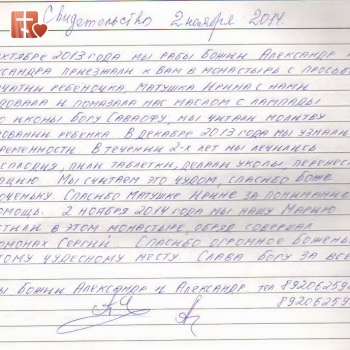 Свидетельство 2 ноября 2014.
октябре 2013 года мы рабы Божии Александр и
ксандра приезжали к Вам в монастырь с просьб
зачатии ребёночка, матушка Ирина с нами
едовала и помазала нас маслом с лампады
иконы Богу Саваофу, мы читали молитву
ровании ребенка. В декабре 2013 года мы узнали
еременности. В течении 2-х лет мы лечились
есплодия, пили таблетки, делали уколы, перенес
рацию. Мы считаем это чудом, спасибо Боже
оченьку. Спасибо матушке Ирине за понимание
омощь. 2 ноября 2014 года мы нашу Марию
естили в этом монастыре, обряд совершал
омонах Сергий. Спасибо огромное Боженьк
ому чудесному месту. Слава Богу за все
ы Божии Александр и Александр тел 89206259
892062598